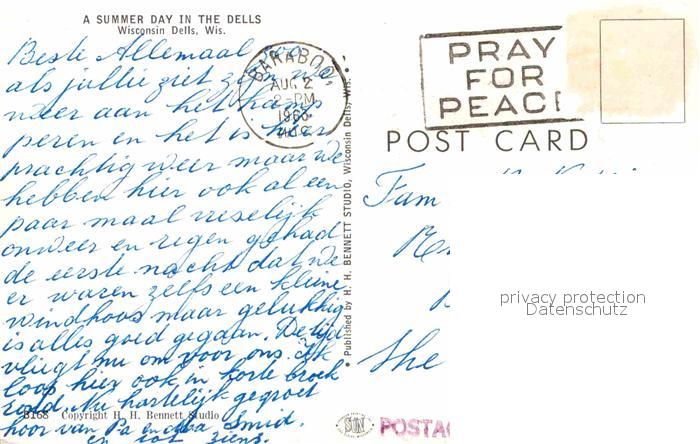 A SUMMER DAY IN THE DELLS
Wisconsin Dells, Wis.
Beste Allemaal
als jullie ziet zijn we
weer aan het kam
peren en het is hier
prachtig weer maar we
hebben hier ook al een
paar maal vreselijk
onweer en regen gehad
de eerste nacht dat we
er waren zelfs een kleine
windhoos maar gelukkig
is alles goed gegaan. De tijd
vliegt nu om voor ons. Ik
loop hier ook in korte broek
rond. Nu hartelijk gegroet
hoor van Pa en Smid.
en tot ziens.
8168 Copyright H. H. Bennett Studio
BARABOO,
AUG 2
2-PM
WIS.
• Published by H. H. BENNETT STUDIO, Wisconsin Dells, Wis. •
PRAY
FOR
PEAC
POST CARD
Fam
The
privacy protection
Datenschutz
POSTA